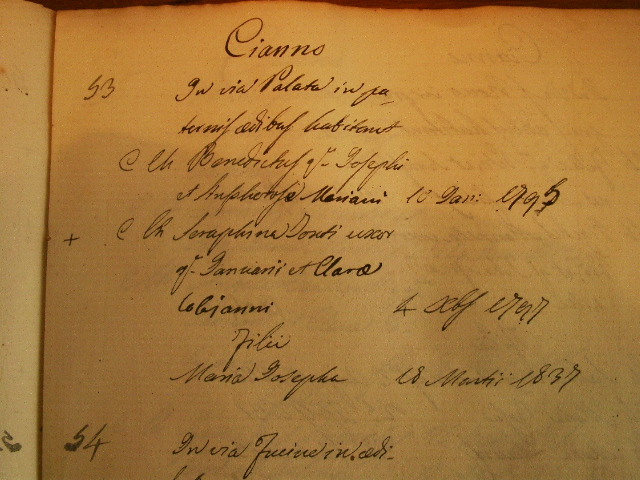 Cianno
53 In via Palata in pa-
ternis ædibus habitant
C Ch Benedictus q.m Josephi
et Mariani 10 Jan: 179
+ C Ch Seraphina Donti uxor
q.m Januarii et Claræ
Colejanni 4 Xbs 1797
Filii
Maria Josepha 18 Martii 1837
54 In via Fucine in ædi-